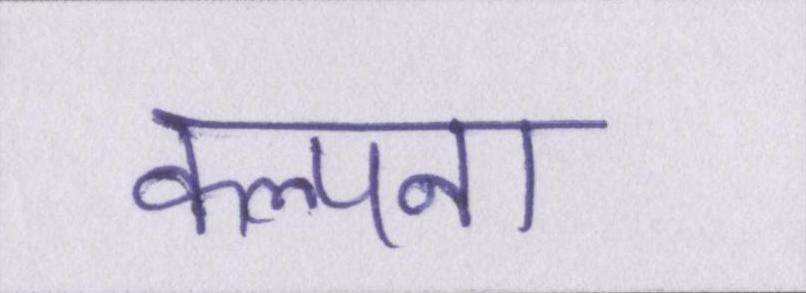 कल्पना